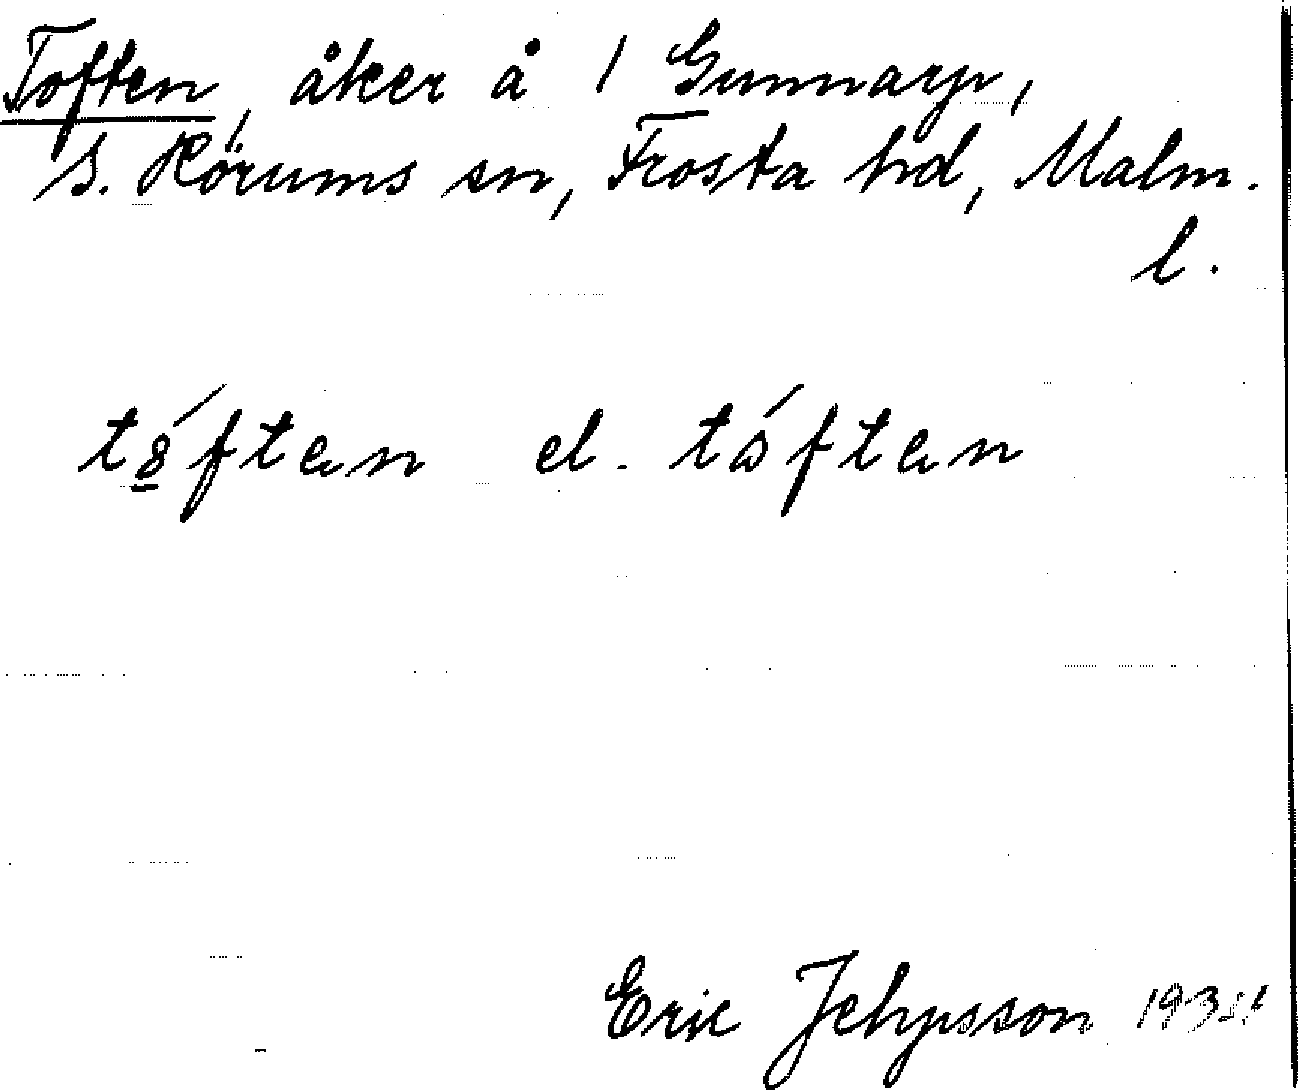 Toften, åker å 1 Gunnarp,
S. Rörums sn, Frosta hd, Malm.
l.
tóften el. tóften
Eric Jehpsson